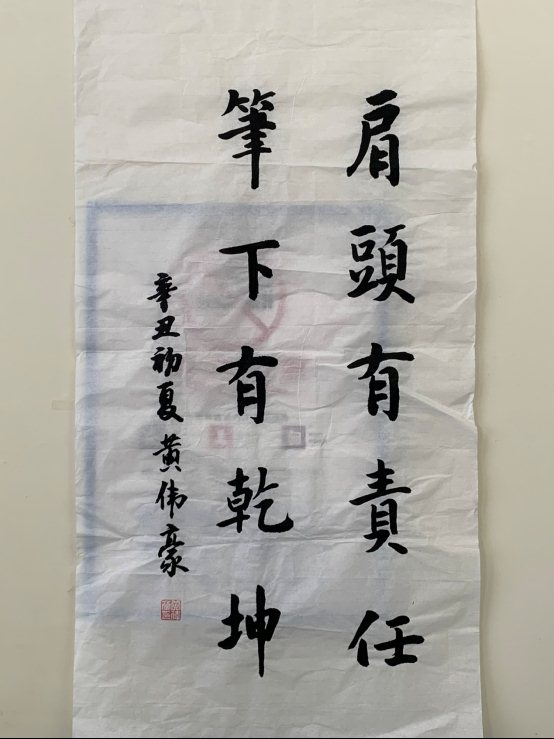 肩頭有責任
筆下有乾坤
辛丑初夏黄伟豪